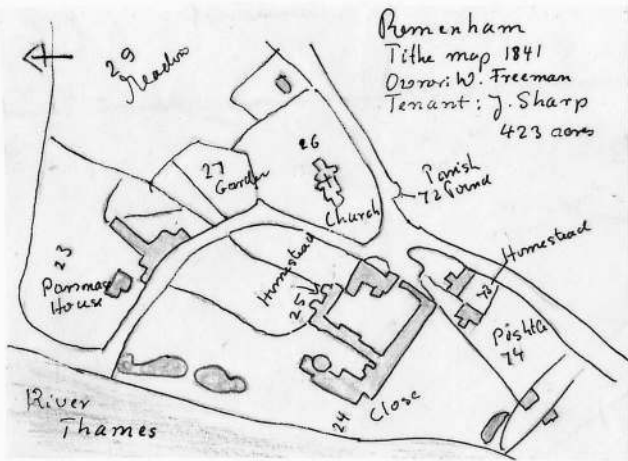 Remenham
Tithe map 1841
Owner: W. Freeman
Tenant: J. Sharp
423 acres
29
Meadow
27
Garden
26
Church
Parish
72 Pound
23
House
Homestead
25
Homestead
73
74
24
Close
River
Thames